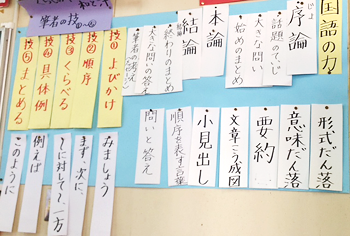 国語の力
序論
話題のていじ
大きな問い
始めのまとめ
本論
結論
終わりのまとめ
大きな問いの答え
筆者の考え
筆者の技
技①よびかけ
技②順序
技③くらべる
技④具体例
技⑤まとめる
形式だん落
意味だん落
要約
文章こう成図
小見出し
順序を表す言葉
問いと答え
みましょう
まず、次に、
〜に対して、一方
例えば
このように